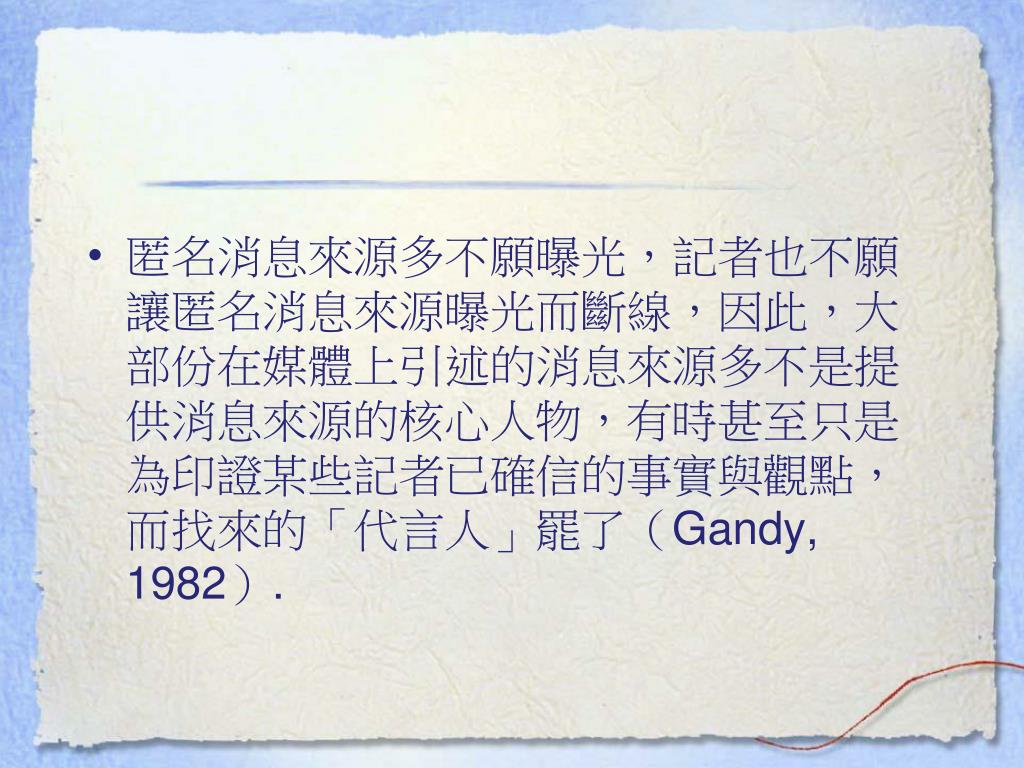 • 匿名消息來源多不願曝光，記者也不願
讓匿名消息來源曝光而斷線，因此，大
部份在媒體上引述的消息來源多不是提
供消息來源的核心人物，有時甚至只是
為印證某些記者已確信的事實與觀點，
而找來的「代言人」罷了（Gandy,
1982）.